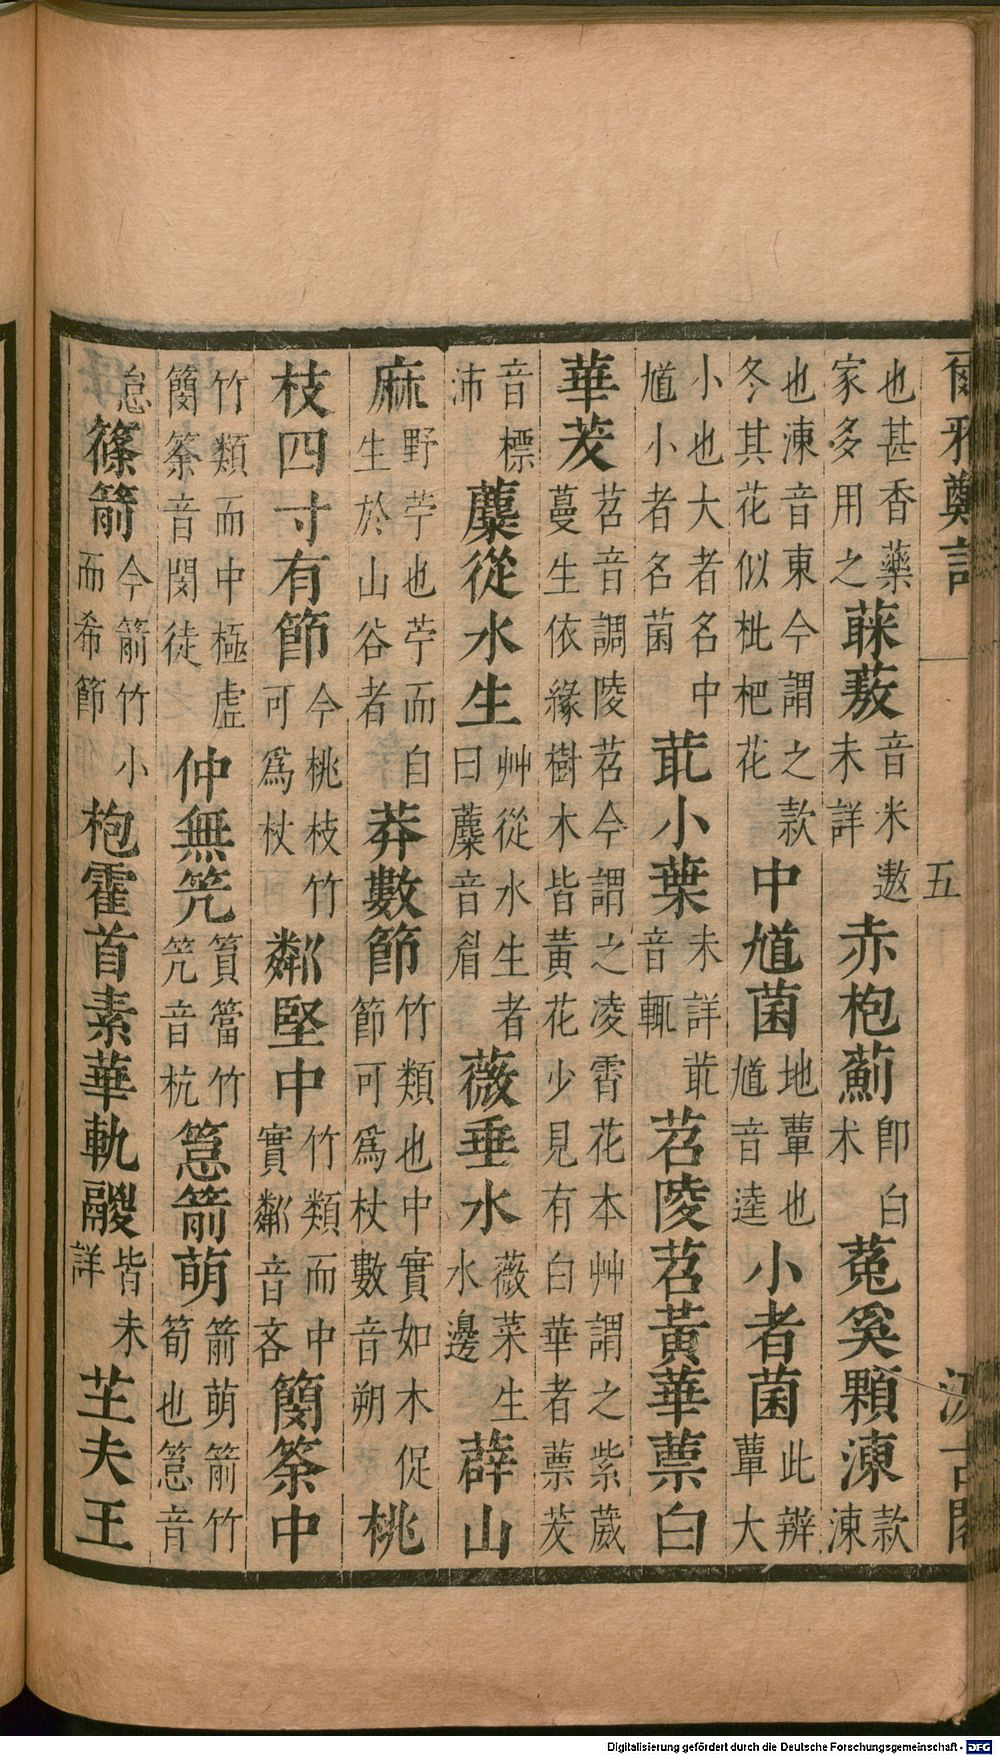 爾雅鄭註　五　汲古閣
也甚香藥家多用之蔝蔜音米遨未詳赤枹薊即白术菟奚顆涷款涷
也涷音東今謂之款冬其花似枇杷花中馗菌地蕈也馗音逵小者菌此辨蕈大
小也大者名中馗小者名菌菆小葉未詳菆音輒苕陵苕黃華蔈白
華茇苕音調陵苕今謂之凌霄花本艸謂之紫葳蔓生依緣樹木皆黃花少見有白華者蔈茇
音標沛蘪從水生艸從水生者曰蘪音眉薇垂水薇菜生水邊薜山
麻野苧也苧而自生於山谷者莽數節竹類也中實如木促節可爲杖數音朔桃
枝四寸有節今桃枝竹可爲杖粼堅中竹類而中實粼音吝簢筡中
竹類而中極虛簢筡音閔徒仲無笐篔簹竹笐音杭䈚箭萌箭萌箭竹筍也䈚音
怠篠箭今箭竹小而希節枹霍首素華軌鬷皆未詳芏夫王
Digitalisierung gefördert durch die Deutsche Forschungsgemeinschaft - DFG